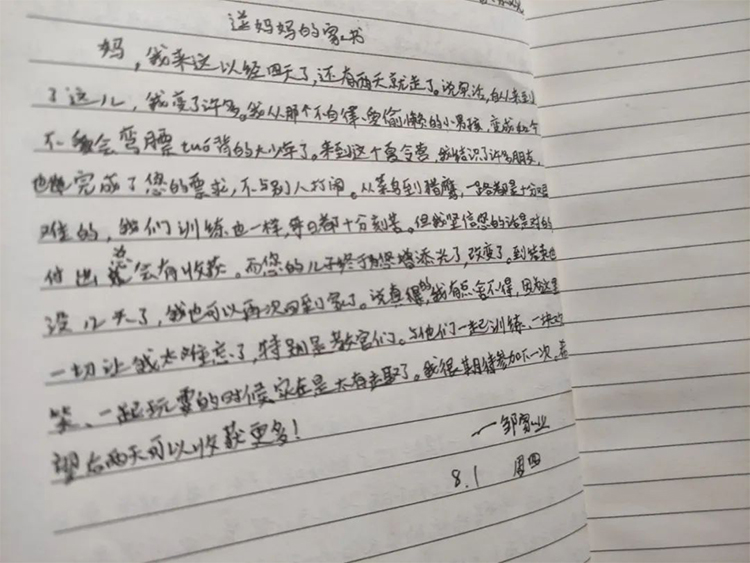 送妈妈的家书
妈，我来这以经四天了，还有两天就走了。说实话，自从来到
了这儿，我变了许多。我从那个不自律、爱偷懒的小男孩，变成如今
不会弯腰tuo背的大少年了。来到这个夏令营，我结识了许多朋友，
也完成了您的要求，不与别人打闹。从菜鸟到猎鹰，一路都是十分艰
难的，我们训练也一样，每日都十分刻苦。但我坚信您的话是对的
付出总会有收获。而您的儿子终于为您增添光了，改变了。到结束也
没几天了，我也可以再次回到家了。说真的，我有点舍不得，因为这里
一切让我太难忘了，特别是教官们。与他们一起训练、一块欢
笑、一起玩耍的时候实在是太有趣了。我很期待参加下一次，希
望后两天可以收获更多！
一邹家业
8.1 周四